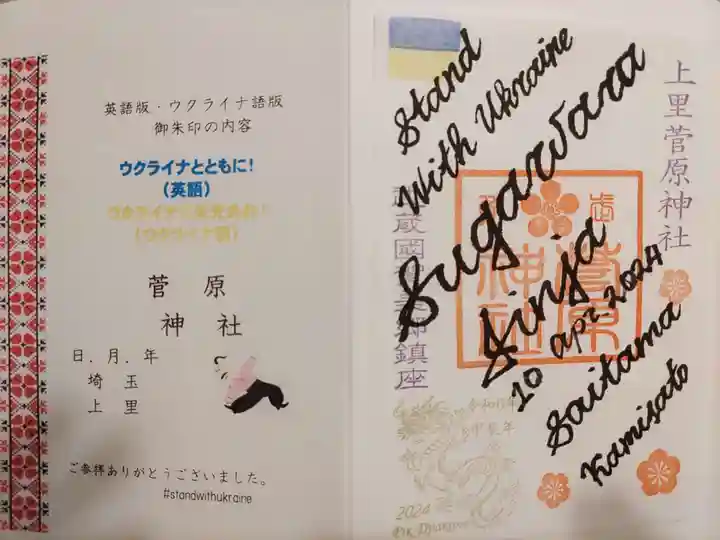 英語版・ウクライナ語版
御朱印の内容
ウクライナとともに!
(英語)
ウクライナに栄光あれ!
(ウクライナ語)
菅原
神社
日.月.年
埼玉
上里
ご参拝ありがとうございました。
#standwithukraine
Stand
With Ukraine
Sugawara
Jinja
10 apr 2024
Saitama
Kamisato
上里菅原神社
鎮座
2024